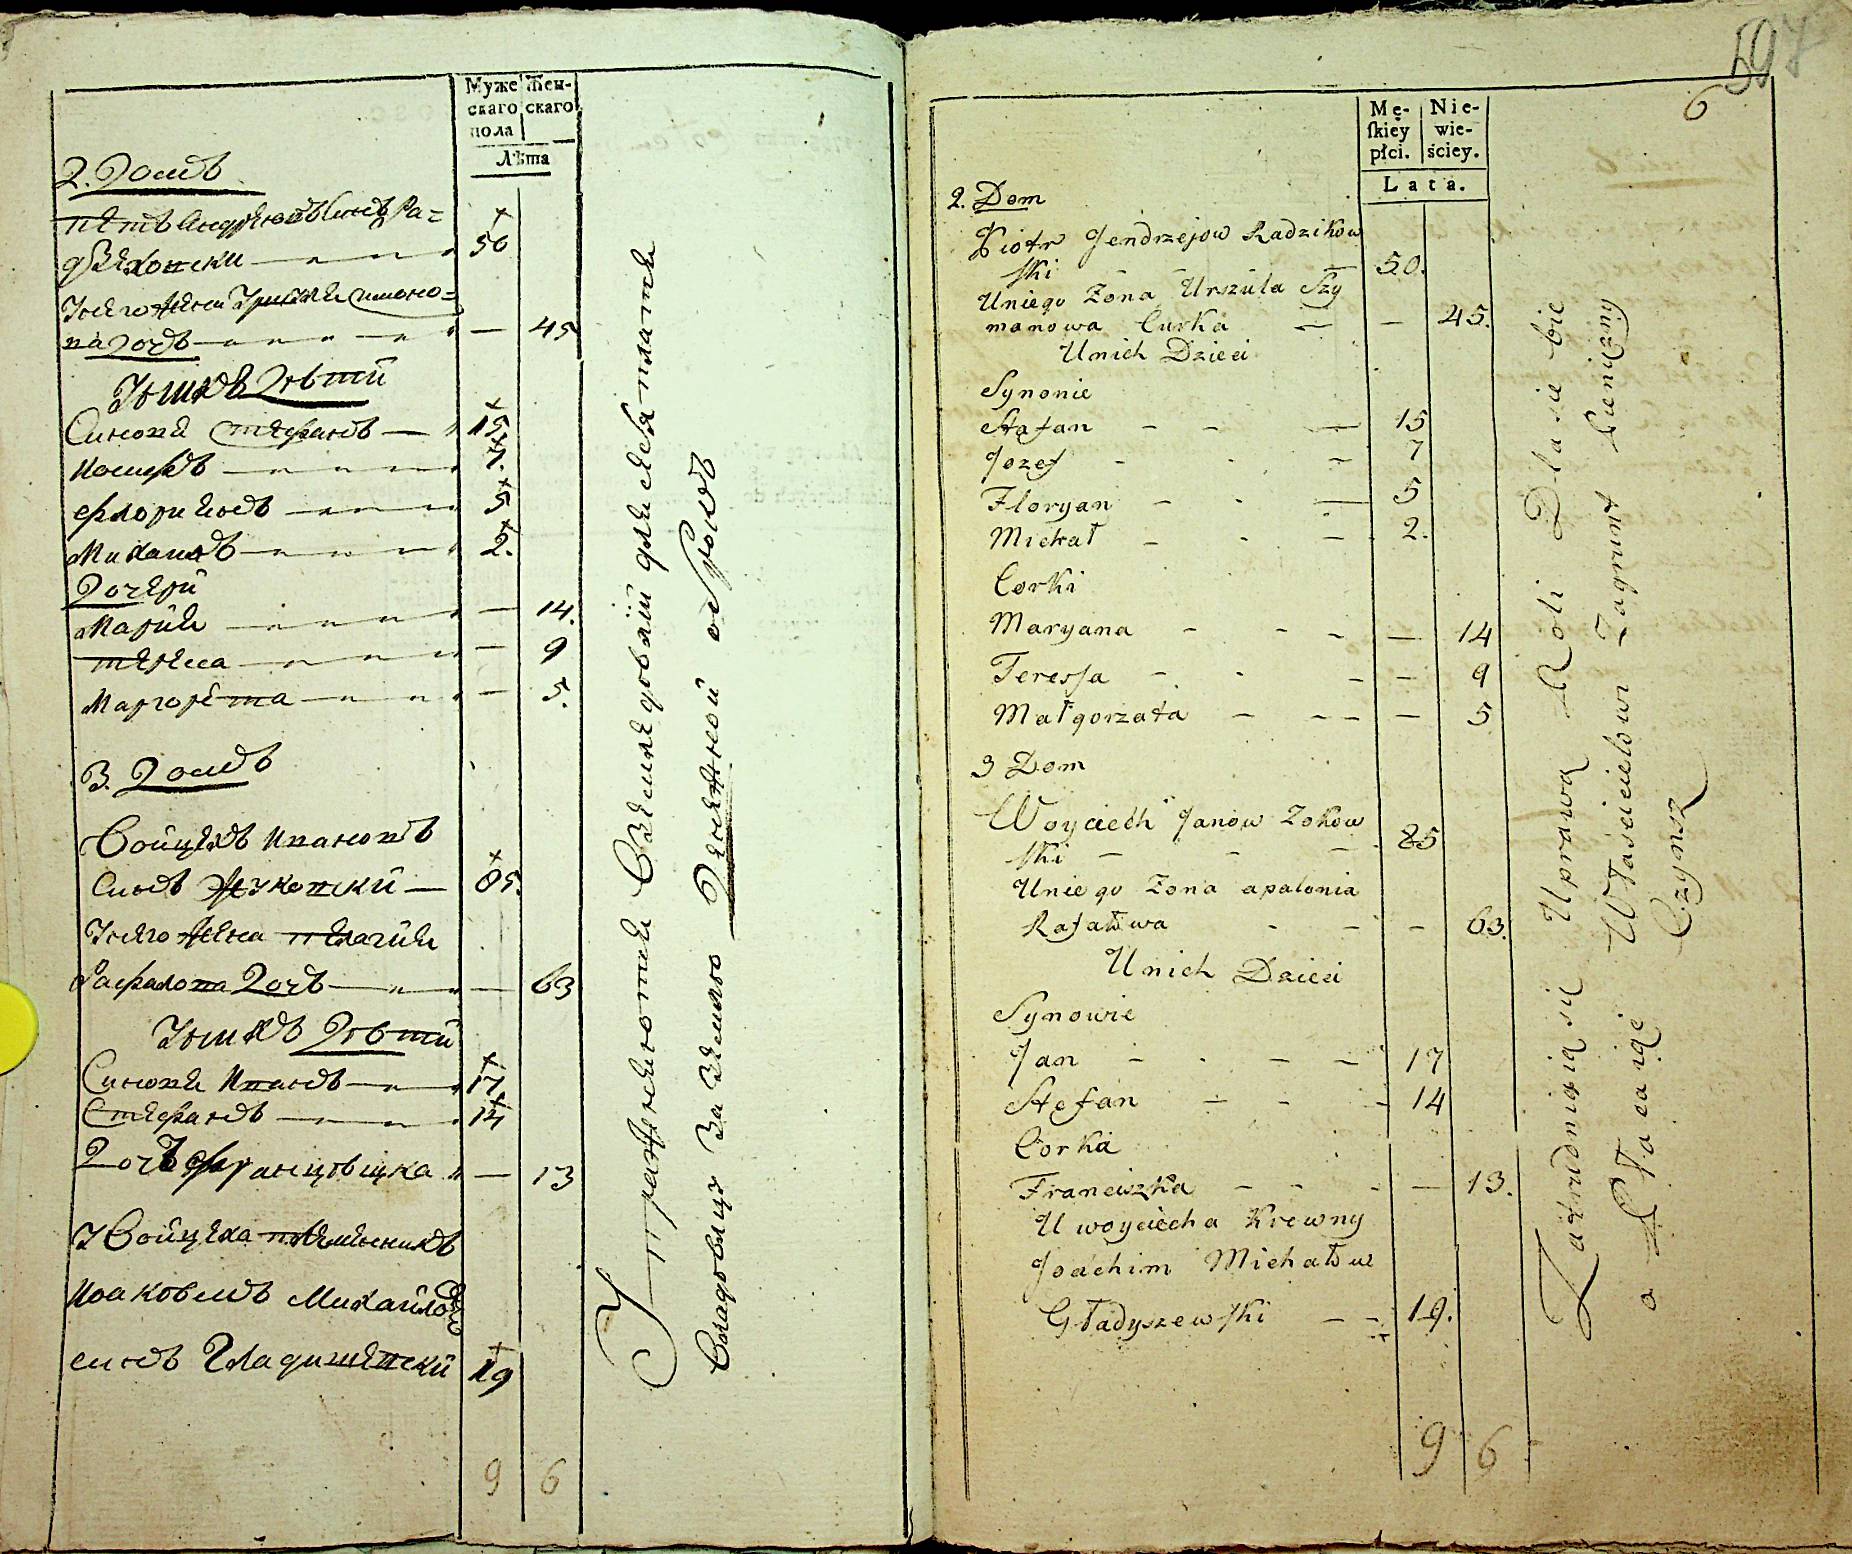 Муже
скаго
пола
Жен-
скаго
Лѣта
2. Домъ
Петръ Андреювъ Сынъ Ра=
дзеховски
50
У него Жена Уршуля Шимоно=
ва дочь
45
У нихъ Дѣти
Сыновя Стефанъ
15
Иосифъ
7.
Флориянъ
5
Михаилъ
2.
Дочери
Марія
14.
Тереса
9
Маргорета
5.
3. Домъ
Войцехъ Ивановъ
Сынъ Жуковски
85.
У него Жена Пелагия
Рафалова Дочь
63
У нихъ Дѣти
Сыновя Иванъ
17
Стефанъ
14
Дочь Францишка
13
У Войцеха племенникъ
Иоаковимъ Михайловъ
сынъ Гладишевски
19
9 6
Упражняются Земледѣліи для себя платя
Владѣльцу За Землю Денежной оброкъ
597
6
Mę-
ſkiey
płci.
Nie-
wie-
ściey.
Lata.
2. Dom
Piotr Jendrzejow Radzikow
ſki
50.
Uniego Zona Urszula Szy
manowa Curka
45.
Unich Dzieci
Synowie
Stafan
15
Jozef
7
Floryan
5
Michał
2.
Corki
Maryana
14
Teresſa
9
Małgorzata
5
3 Dom
Woyciech Janow Zokow
ſki
85
Uniego Zona apalonia
Rafałowa
63.
Unich Dzieci
Synowie
Jan
17
Stefan
14
Corka
Franciszka
13.
U woyciecha Krewny
Joachim Michałow
Gładyszewſki
19.
9 6
Zatrudniaią się Uprawą Roli Dla sie bie
a Płacą iąc Właścicielowi Zagrunt Pieniężny
Czynsz